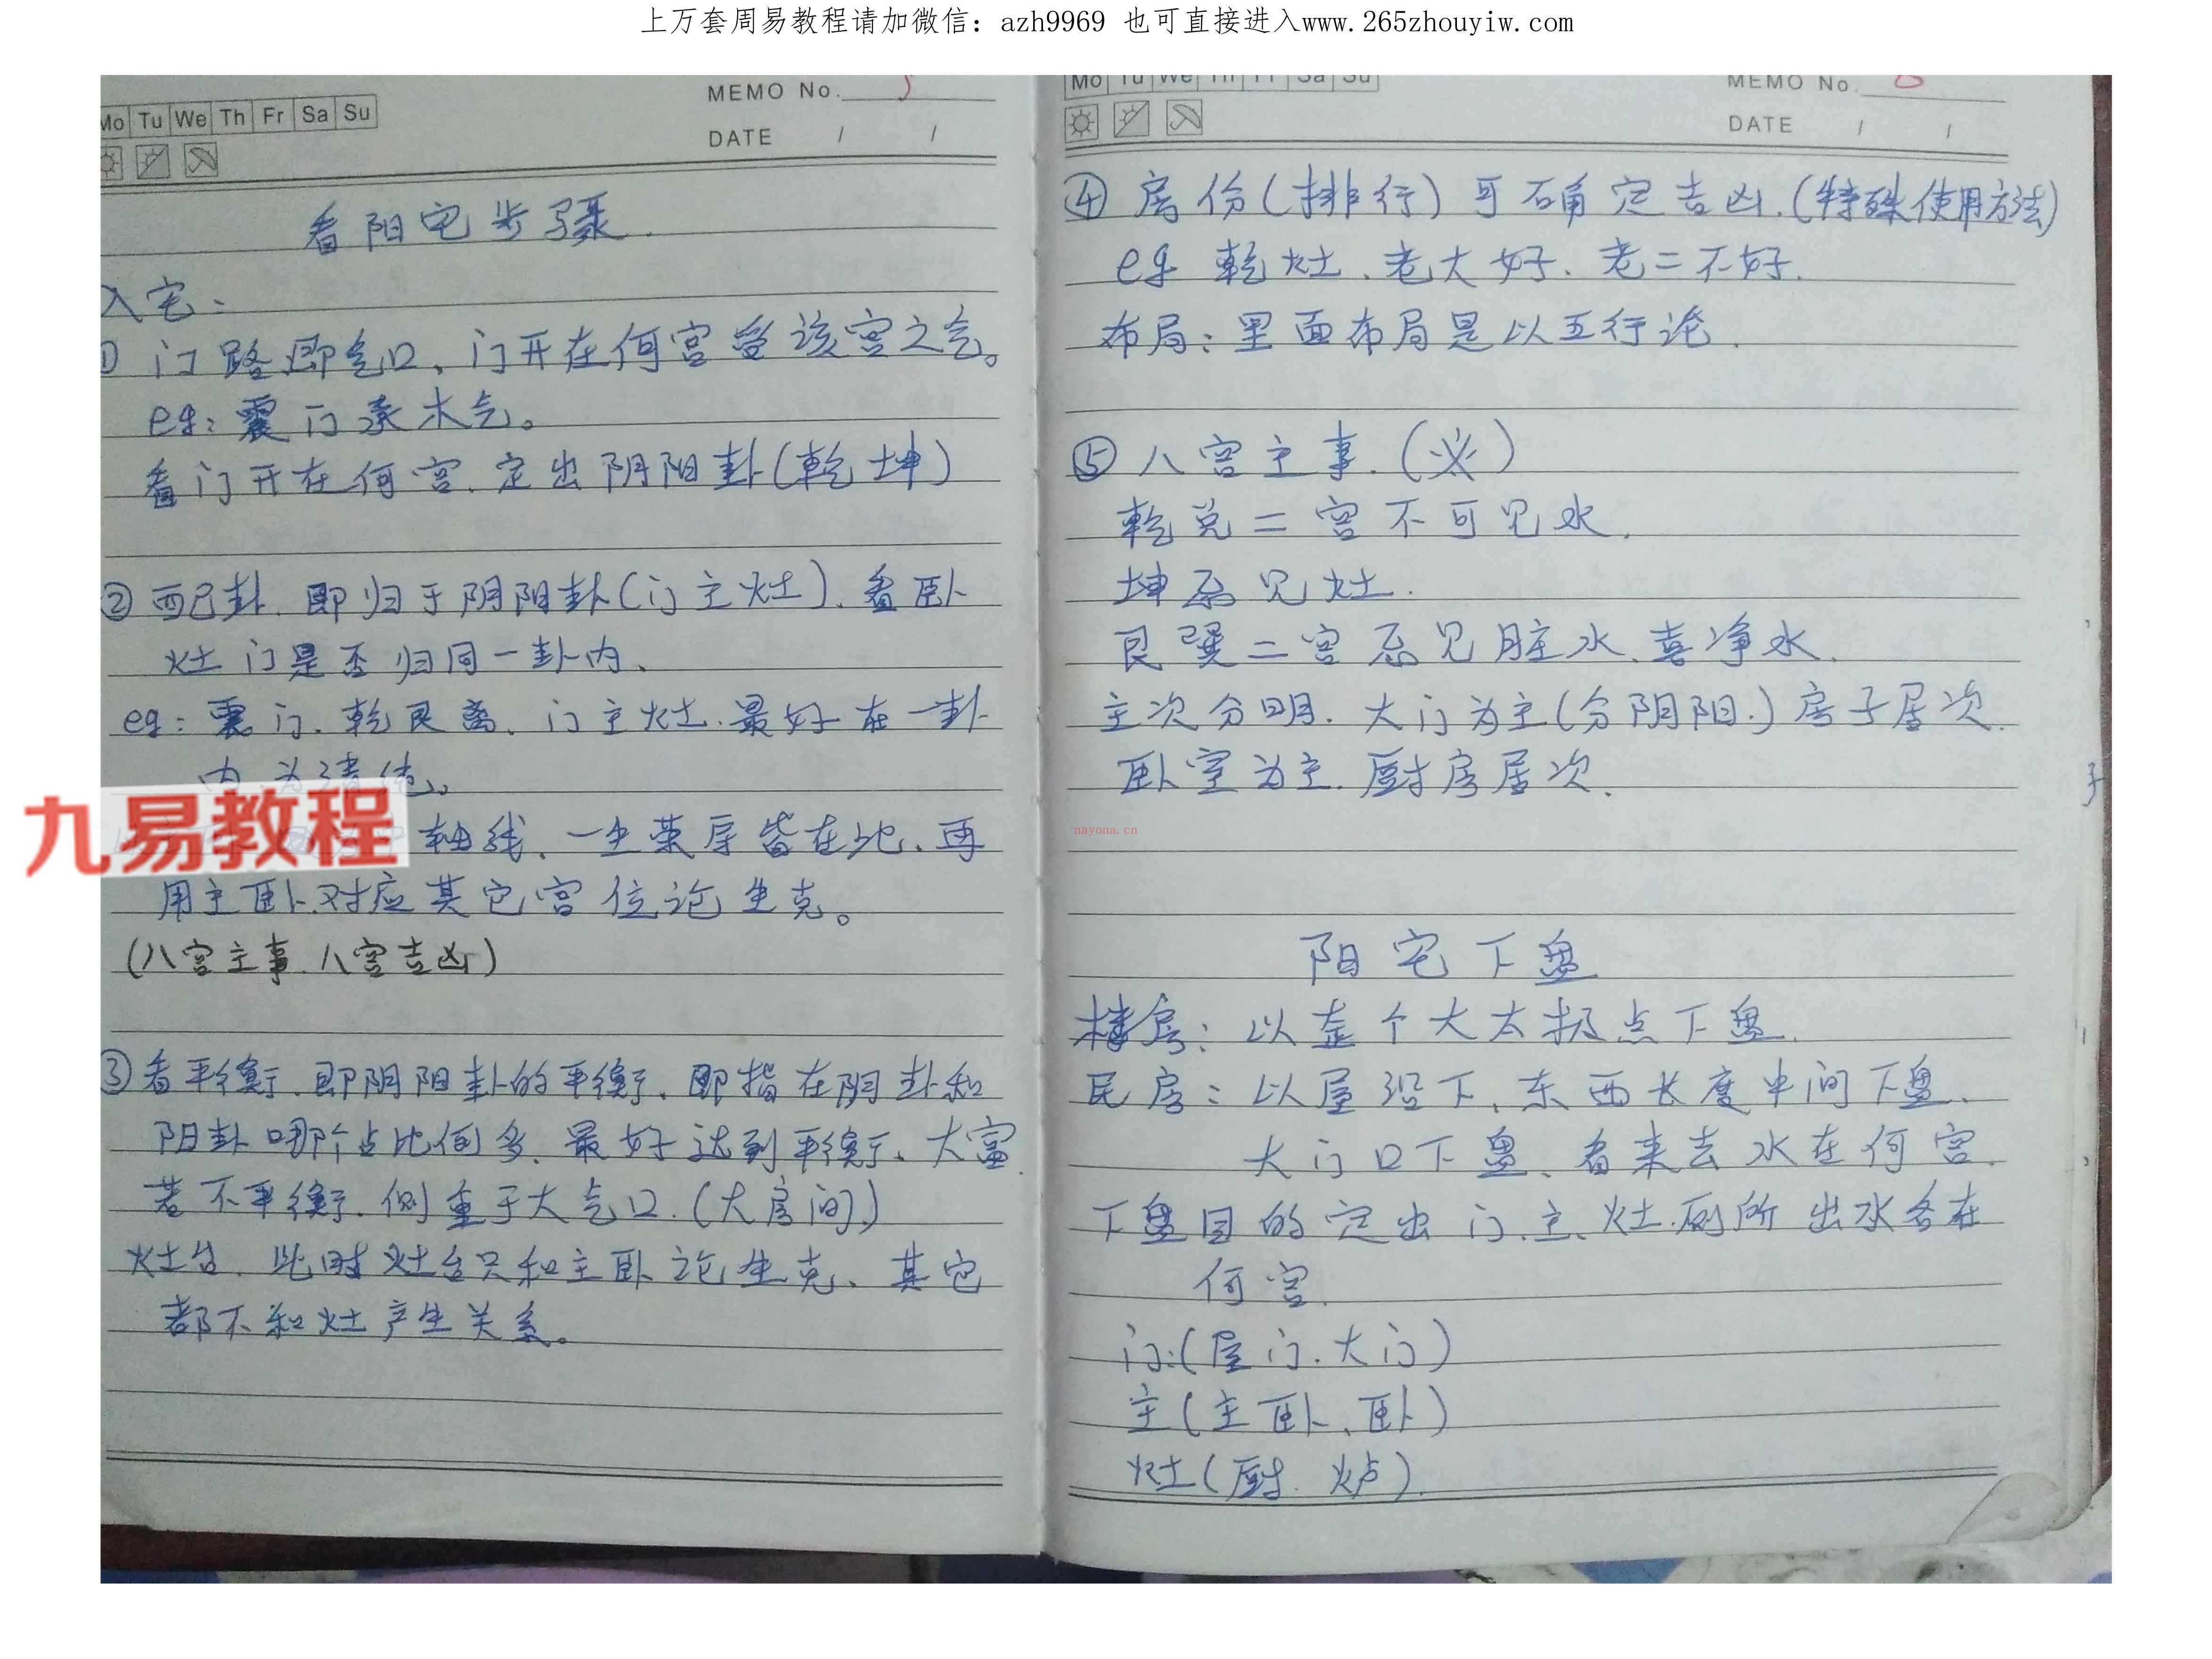 上万套周易教程请加微信：azh9969 也可直接进入www.265zhouyiw.com
Mo Tu We Th Fr Sa Su
MEMO No. 5
DATE / /
看阳宅步骤.
入宅：
① 门路即气口、门开在何宫受该宫之气。
eg：震门承木气。
看门开在何宫、定出阴阳卦(乾坤)
② 配卦、即归于阴阳卦(门主灶)、看卧
灶门是否归同一卦内、
eg：震门、乾艮离、门主灶、最好在一卦
内、为清纯。
轴线、一生荣辱皆在此、再
用主卧对应其它宫位论生克。
(八宫主事、八宫吉凶)
③ 看平衡、即阴阳卦的平衡、即指在阴卦和
阳卦哪个占比例多、最好达到平衡、大富.
若不平衡、侧重于大气口.(大房间)
灶台、此时灶台只和主卧论生克、其它
都不和灶产生关系。
Mo Tu We Th Fr Sa Su
MEMO No.
DATE / /
④ 房份(排行)可确定吉凶.(特殊使用方法)
eg 乾灶、老大好、老二不好.
布局：里面布局是以五行论.
⑤ 八宫主事.(必)
乾兑二宫不可见水.
坤忌见灶.
艮巽二宫忌见脏水、喜净水.
主次分明.大门为主(分阴阳.)房子居次.
卧室为主.厨房居次.
阳宅下盘
楼房：以整个大太极点下盘.
民房：以屋沿下、东西长度中间下盘、
大门口下盘、看来去水在何宫.
下盘目的定出门、主、灶.厕所出水各在
何宫.
门：(屋门.大门)
主(主卧、卧)
灶(厨.炉).
九易教程
nayona.cn